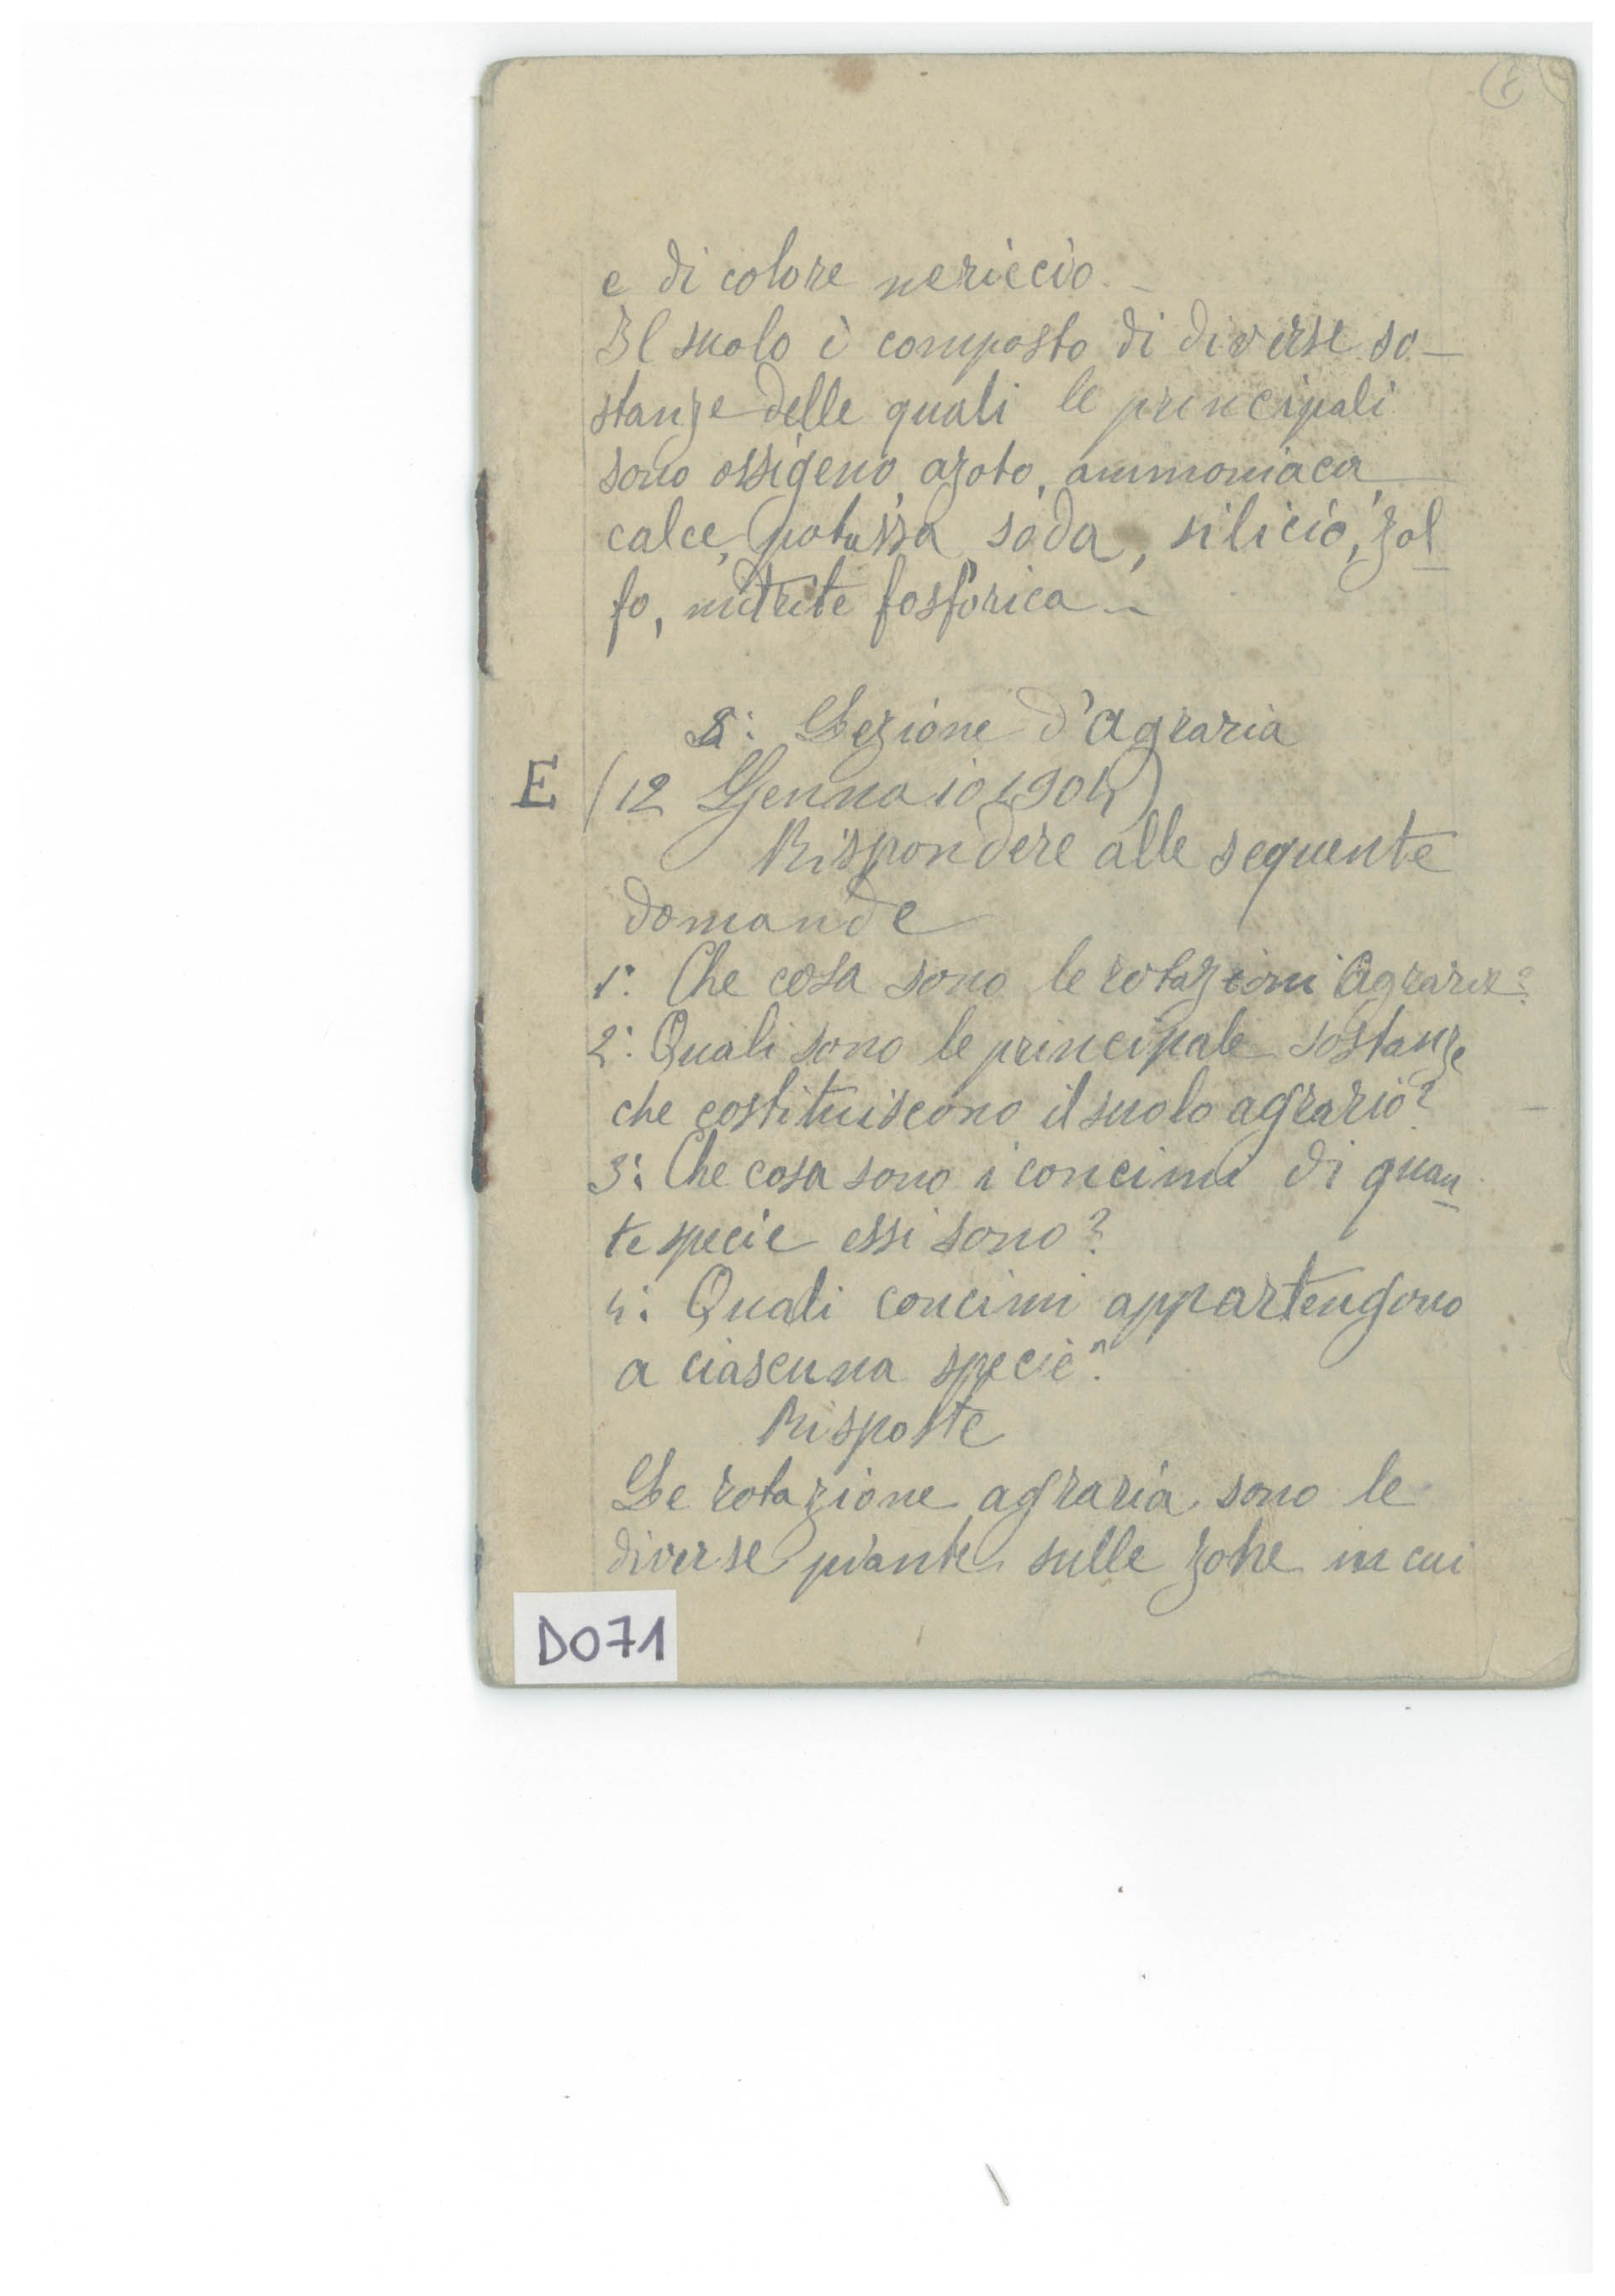 e di colore nericcio. –
Il suolo è composto di diverse so–
stanze delle quali le principali
sono ossigeno, azoto, ammoniaca,
calce, potassa, soda, silicio, zol_
fo, fosforica –
Lezione d'Agraria
E (12 Gennaio 1904)
Rispondere alle seguente
domande
1: Che cosa sono le rotazioni Agrarie?
2: Quali sono le principale sostanze
che costituiscono il suolo agrario?
3: Che cosa sono i concimi di quan_
te specie essi sono?
4: Quali concimi appartengono
a ciascuna specie?
Risposte
Le rotazione agraria sono le
diverse piante sulle zone in cui
D071